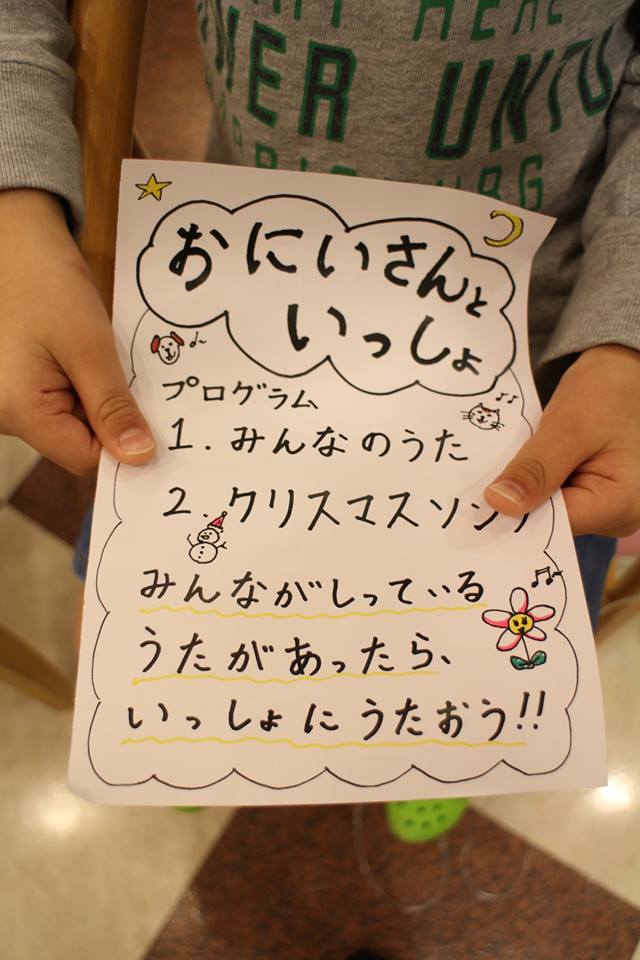 HERE
UNTO
おにいさんと
いっしょ
プログラム
1. みんなのうた
2. クリスマスソン
みんながしっている
うたがあったら、
いっしょにうたおう!!